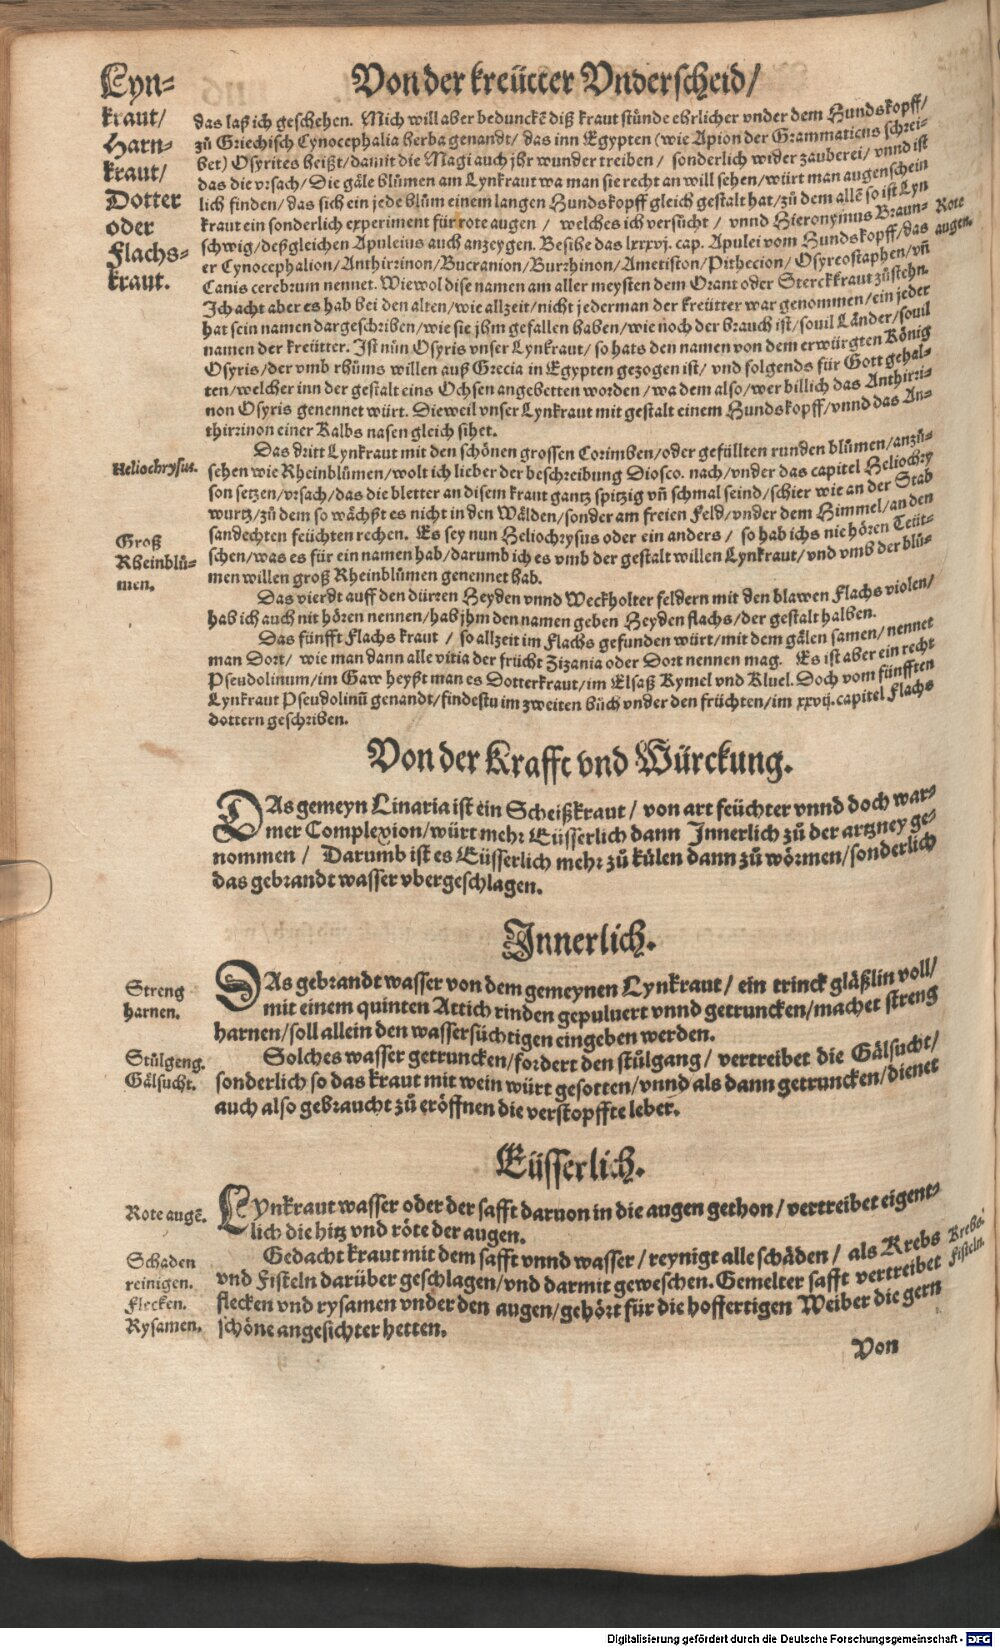 Von der kreütter Vnderscheid/
Lyn-
kraut/
Harn-
kraut/
Dotter
oder
Flachs-
kraut.
das laß ich geschehen. Mich will aber bedunckẽ diß kraut stünde ehrlicher vnder dem Hundskopff/
zů Griechisch Cynocephalia herba genandt/ das inn Egypten (wie Apion der Grammaticus schrei-
bet) Osyrites heißt/ damit die Magi auch jhr wunder treiben/ sonderlich wider zauberei/ vnnd ist
das die vrsach/ Die gäle blůmen am Lynkraut wa man sie recht an will sehen/ würt man augenschein
lich finden/ das sich ein jede blům einem langen Hundskopff gleich gestalt hat/ zů dem allẽ so ist Lyn
kraut ein sonderlich experiment für rote augen / welches ich versůcht / vnnd Hieronymus Braun-
Rote
augen.
schwig/ deßgleichen Apuleius auch anzeygen. Besihe das lxxxvj. cap. Apulei vom Hundskopff/ das
er Cynocephalion/ Anthirrinon/ Bucranion/ Burrhinon/ Ametiston/ Pithecion/ Osyreostaphen/ vñ
Canis cerebrum nennet. Wiewol dise namen am aller meysten dem Orant oder Sterckkraut zůstehn.
Ich acht aber es hab bei den alten/ wie allzeit/ nicht jederman der kreütter war genommen/ ein jeder
hat sein namen dargeschriben/ wie sie jhm gefallen haben/ wie noch der brauch ist/ souil Länder/ souil
namen der kreütter. Ist nůn Osyris vnser Lynkraut/ so hats den namen von dem erwürgten König
Osyris/ der vmb rhůms willen auß Grecia in Egypten gezogen ist/ vnd folgends für Gott gehal-
ten/ welcher inn der gestalt eins Ochsen angebetten worden/ wa dem also/ wer billich das Anthirri-
non Osyris genennet würt. Dieweil vnser Lynkraut mit gestalt einem Hundskopff/ vnnd das An-
thirrinon einer Kalbs nasen gleich sihet.
Das dritt Lynkraut mit den schönen grossen Corimben/ oder gefüllten runden blůmen/ anzů-
Heliochrysus.
sehen wie Rheinblůmen/ wolt ich lieber der beschreibung Diosco. nach/ vnder das capitel Heliochry
son setzen/ vrsach/ das die bletter an disem kraut gantz spitzig vñ schmal seind/ schier wie an der Stab
wurtz/ zů dem so wächßt es nicht in den Wälden/ sonder am freien Feld/ vnder dem Himmel/ an den
sandechten feüchten rechen. Es sey nun Heliochrysus oder ein anders / so hab ichs nie hören Teüt-
Groß
Rheinblů-
men.
schen/ was es für ein namen hab/ darumb ich es vmb der gestalt willen Lynkraut/ vnd vmb der blů-
men willen groß Rheinblůmen genennet hab.
Das vierdt auff den dürren Heyden vnnd Weckholter feldern mit den blawen Flachs violen/
hab ich auch nit hören nennen/ hab jhm den namen geben Heyden flachs/ der gestalt halben.
Das fünfft Flachs kraut / so allzeit im Flachs gefunden würt/ mit dem gälen samen/ nennet
man Dort/ wie man dann alle vitia der frücht Zizania oder Dort nennen mag. Es ist aber ein recht
Pseudolinum/ im Gaw heyßt man es Dotterkraut/ im Elsaß Kymel vnd Kluel. Doch vom fünfften
Lynkraut Pseudolinũ genandt/ findestu im zweiten bůch vnder den früchten/ im xxvij. capitel Flachs
dottern geschriben.
Von der Krafft vnd Würckung.
DAs gemeyn Linaria ist ein Scheißkraut / von art feüchter vnnd doch war-
mer Complexion/ würt mehr Eüsserlich dann Innerlich zů der artzney ge-
nommen / Darumb ist es Eüsserlich mehr zů külen dann zů wörmen/ sonderlich
das gebrandt wasser vbergeschlagen.
Innerlich.
DAs gebrandt wasser von dem gemeynen Lynkraut/ ein trinck gläßlin voll/
Streng
harnen.
mit einem quinten Attich rinden gepuluert vnnd getruncken/ machet streng
harnen/ soll allein den wassersüchtigen eingeben werden.
Stůlgeng.
Gälsucht.
Solches wasser getruncken/ fordert den stůlgang/ vertreibet die Gälsucht/
sonderlich so das kraut mit wein würt gesotten/ vnnd als dann getruncken/ dienet
auch also gebraucht zů eröffnen die verstopffte leber.
Eüsserlich.
Rote augẽ.
LYnkraut wasser oder der safft daruon in die augen gethon/ vertreibet eigent-
lich die hitz vnd röte der augen.
Schaden
reinigen.
Flecken.
Rysamen.
Gedacht kraut mit dem safft vnnd wasser/ reynigt alle schäden/ als Krebs
Krebs.
Fisteln.
vnd Fisteln darüber geschlagen/ vnd darmit geweschen. Gemelter safft vertreibet
flecken vnd rysamen vnder den augen/ gehört für die hoffertigen Weiber die gern
schöne angesichter hetten.
Von
Digitalisierung gefördert durch die Deutsche Forschungsgemeinschaft - DFG